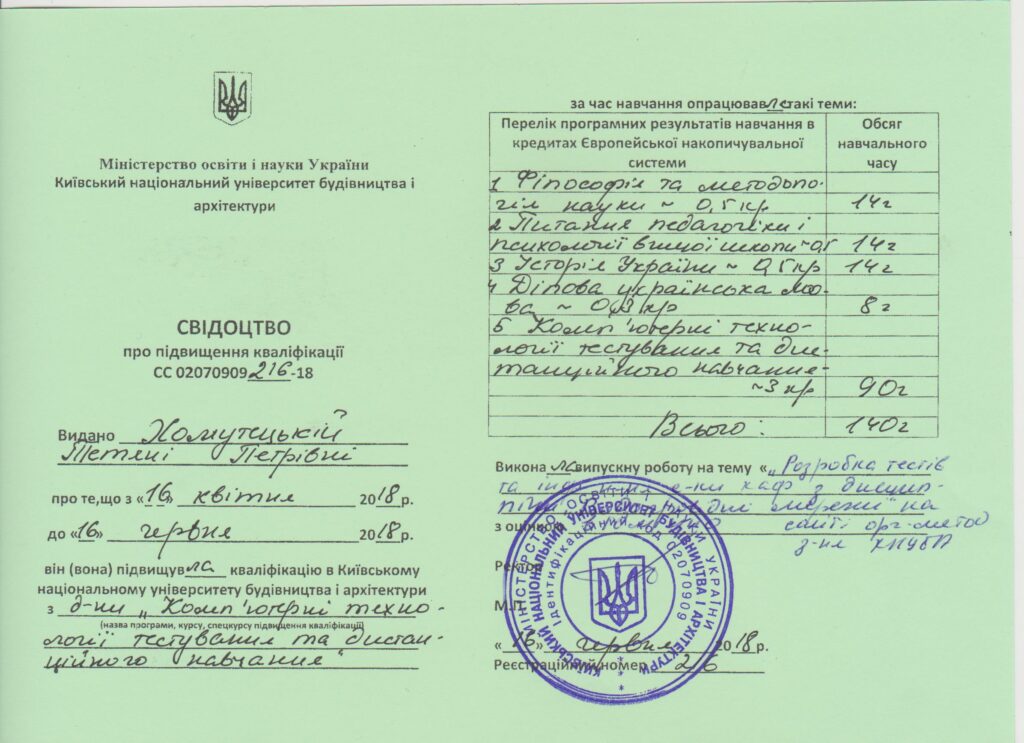 Міністерство освіти і науки України
Київський національний університет будівництва і
архітектури
СВІДОЦТВО
про підвищення кваліфікації
СС 02070909 216 -18
Видано Хомутецькій
Тетяні Петрівні
про те,що з «16» квітня 2018 р.
до «16» червня 2018 р.
він (вона) підвищув ла кваліфікацію в Київському
національному університету будівництва і архітектури
з д-ни „Комп'ютерні техно-
(назва програми, курсу, спецкурсу підвищення кваліфікації)
логії тестування та дистан-
ційного навчання"
за час навчання опрацював ла такі теми:
Перелік програмних результатів навчання в
кредитах Європейської накопичувальної
системи
Обсяг
навчального
часу
1 Філософія та методоло-
гія науки ~ 0,5 кр 14г
2 Питання педагогіки і
психології вищої школи ~0,5 14г
3 Історія України ~ 0,5 кр 14г
4 Ділова українська мо-
ва ~ 0,3 кр 8г
5 Комп'ютерні техно-
логії тестування та дис-
танційного навчання-
~3 кр 90г
Всього: 140г
Викона ла випускну роботу на тему «„Розробка тестів
та з дисцип-
мережі" на
з оцінкою сайті орг-метод
з-ня КНУБА
Ректор
М.П.
«16» червня 2018 р.
Реєстраційний номер 216
МІНІСТЕРСТВО ОСВІТИ І НАУКИ УКРАЇНИ
КИЇВСЬКИЙ НАЦІОНАЛЬНИЙ УНІВЕРСИТЕТ БУДІВНИЦТВА І АРХІТЕКТУРИ
Ідентифікаційний код 02070909